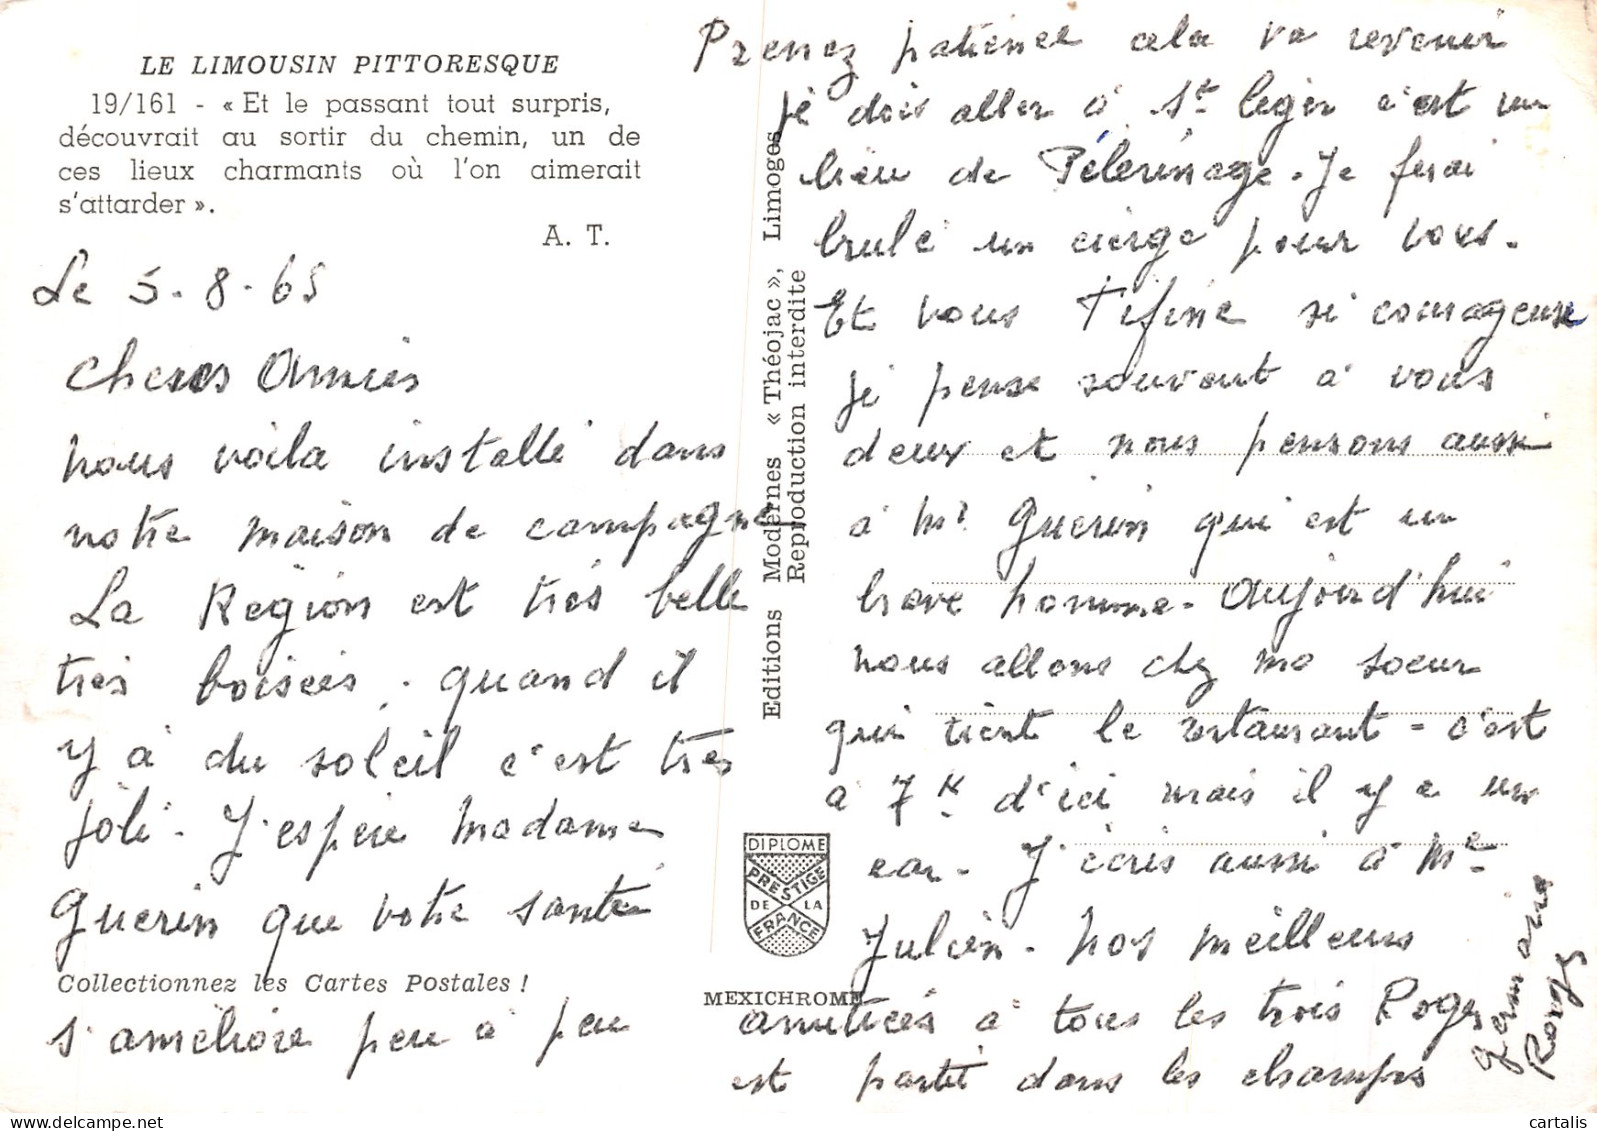 LE LIMOUSIN PITTORESQUE
19/161 - « Et le passant tout surpris,
découvrait au sortir du chemin, un de
ces lieux charmants où l'on aimerait
s'attarder ».
A. T.
Le 5-8-65
Cheres Amies
nous voila installé dans
notre maison de campagne
La Région est très belle
très boisées. quand il
y à du soleil c'est très
joli. J'espère Madame
Guerin que votre santé
Collectionnez les Cartes Postales !
s'améliore peu à peu
Editions Modernes « Théojac », Limoges
Reproduction interdite
DIPLOME
PRESTIGE
DE LA
FRANCE
MEXICHROME
Prenez patience cela va revenir
je dois aller à St leger c'est un
lieu de Pélerinage. Je ferai
brulé un cierge pour vous.
Et vous Fifine si courageuse
je pense souvent à vous
deux et nous pensons aussi
à Mr Guerin qui est un
brave homme. Aujourd'hui
nous allons chez ma soeur
qui tient le restaurant - c'est
à 7 K d'ici mais il y a un
car. J'écris aussi à Me
Julien. Nos meilleurs
amitiés à tous les trois Roger
est partit dans les champs
Germaine
Roger